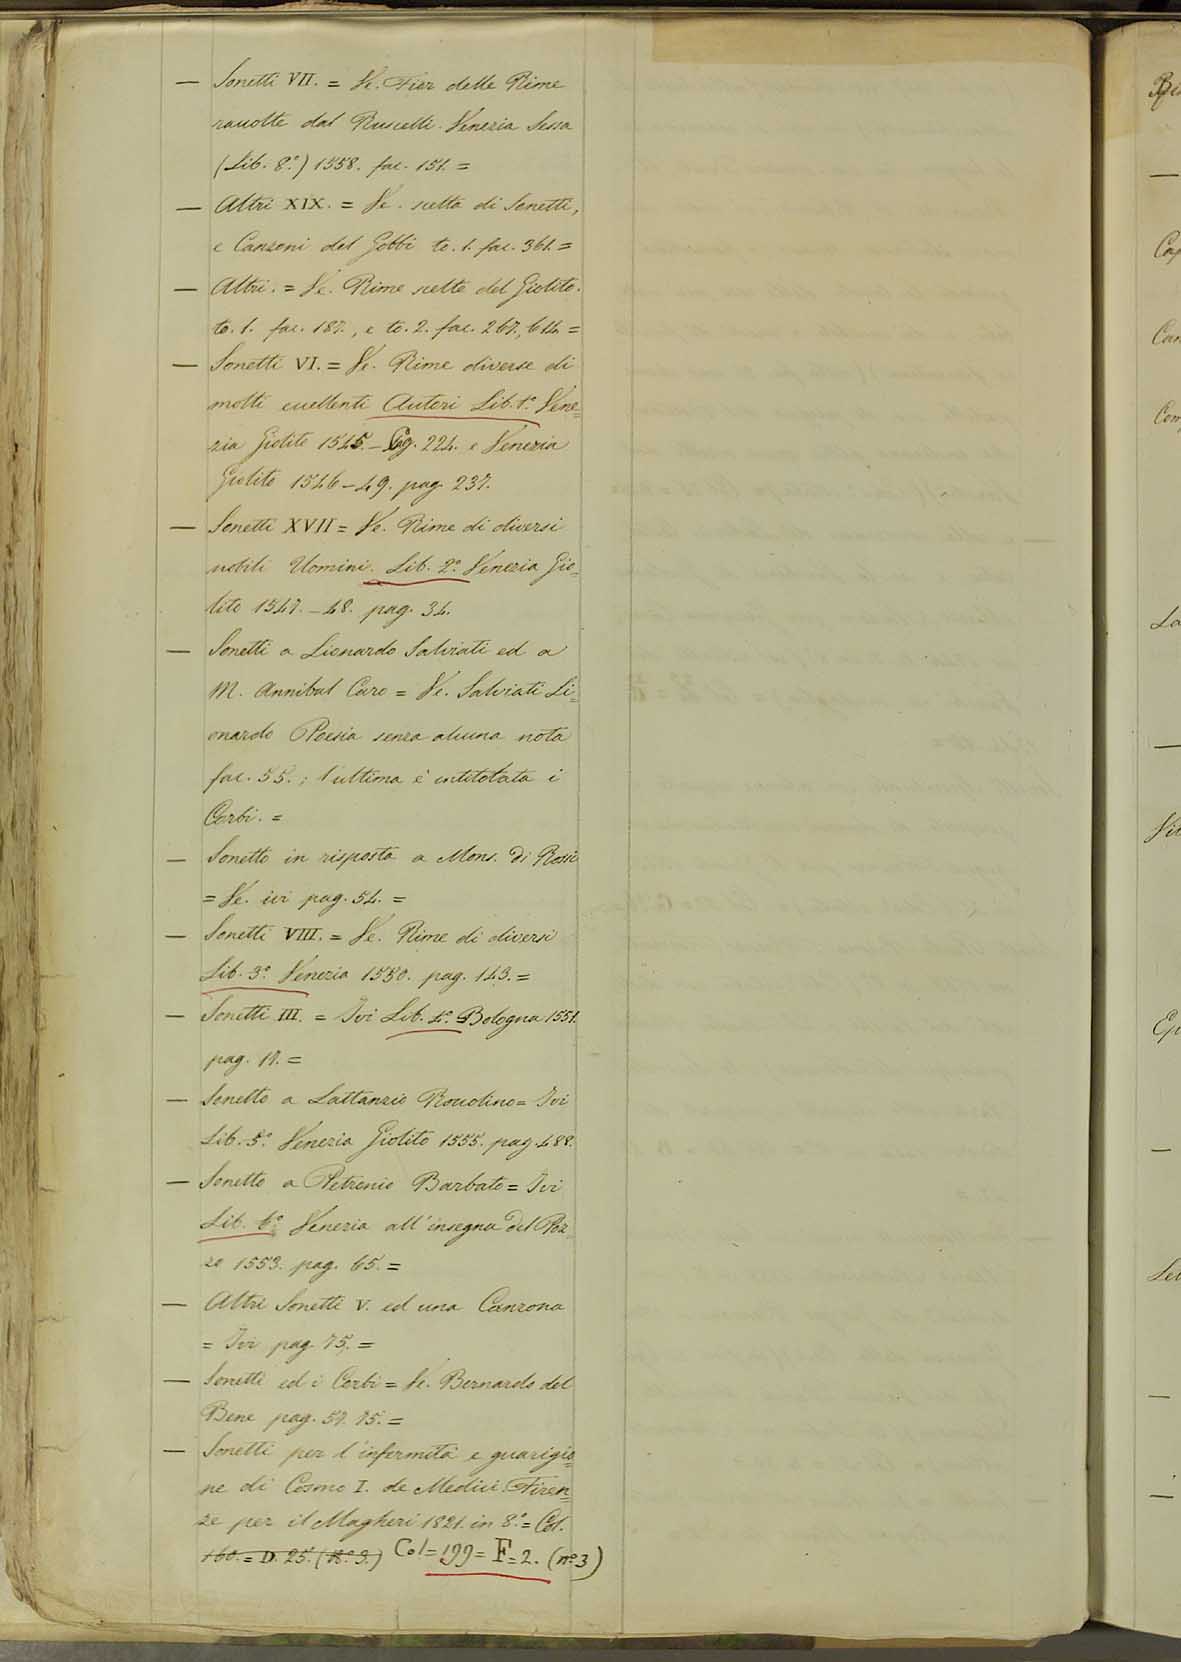 — Sonetti VII. = Ve. Fior delle Rime
raccolte dal Ruscelli. Venezia Sessa
(Lib. 8.°) 1558. fac. 151. =
— Altri XIX. = Ve. scelta di Sonetti,
e Canzoni del Gobbi to. 1. fac. 361. =
— Altri. = Ve. Rime scelte del Giolito.
to. 1. fac. 187., e to. 2. fac. 267, 614 =
— Sonetti VI. = Ve. Rime diverse di
molti eccellenti Autori Lib. 1.° Vene=
zia Giolito 1545. – pag. 224. e Venezia
Giolito 1546 – 49. pag. 237.
— Sonetti XVII = Ve. Rime di diversi
nobili Uomini. Lib. 2.° Venezia Gio=
lito 1547. – 48. pag. 34.
— Sonetti a Lionardo Salviati ed a
M. Annibal Caro = Ve. Salviati Li=
onardo Poesia senza alcuna nota
fac. 55. ; l'ultima è intitolata i
Corbi. =
— Sonetto in risposta a Mons. di Rossi
= Ve. ivi pag. 54. =
— Sonetti VIII. = Ve. Rime di diversi
Lib. 3.° Venezia 1550. pag. 143. =
— Sonetti III. = Ivi Lib. 4.° Bologna 1551.
pag. 17. =
— Sonetto a Lattanzio Roccolino = Ivi
Lib. 5.° Venezia Giolito 1555. pag. 488.
— Sonetto a Petronio Barbato = Ivi
Lib. 6.° Venezia all'insegna del Poz
zo 1553. pag. 65. =
— Altri Sonetti V. ed una Canzona
= Ivi pag. 75. =
— Sonetti ed i Corbi = Ve. Bernardo del
Bene pag. 57. 75. =
— Sonetti per l'infermità e guarigio=
ne di Cosmo I. de Medici. Firen=
ze per il Magheri 1821. in 8.° = Col.
160. = D. 25. (N.° 9.) Col = 199 = F = 2. (n.° 3)